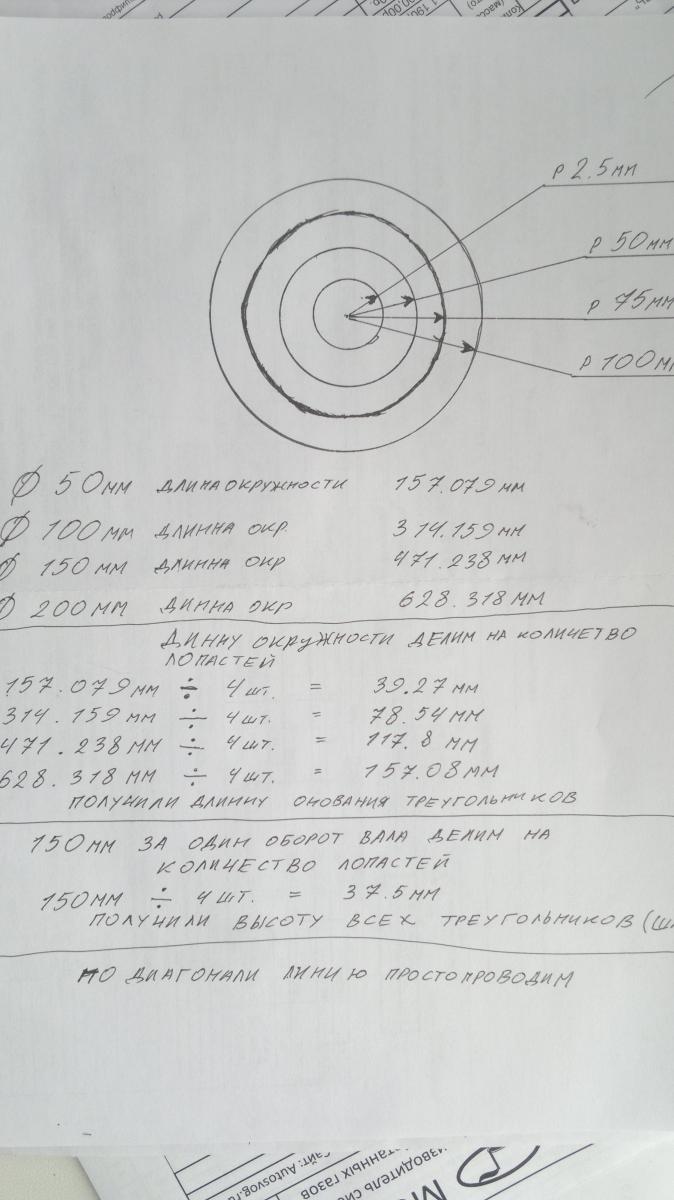 р 2.5мм
р 50мм
р 75мм
р 100м
Ø 50мм длина окружности 157.079мм
Ø 100мм длинна окр. 314.159мм
Ø 150мм длинна окр 471.238мм
Ø 200мм динна окр 628.318мм
Динну окружности делим на количетво
лопастей
157.079мм ÷ 4шт. = 39.27мм
314.159мм ÷ 4шт. = 78.54мм
471.238мм ÷ 4шт. = 117.8 мм
628.318мм ÷ 4шт. = 157.08мм
получили длинну онования треугольников
150мм за один оборот вала делим на
количество лопастей
150мм ÷ 4шт. = 37.5мм
получили высоту всех треугольников (ш
по диагонали линию просто проводим
айт: Autosvog.r
танных газов
изводитель сис